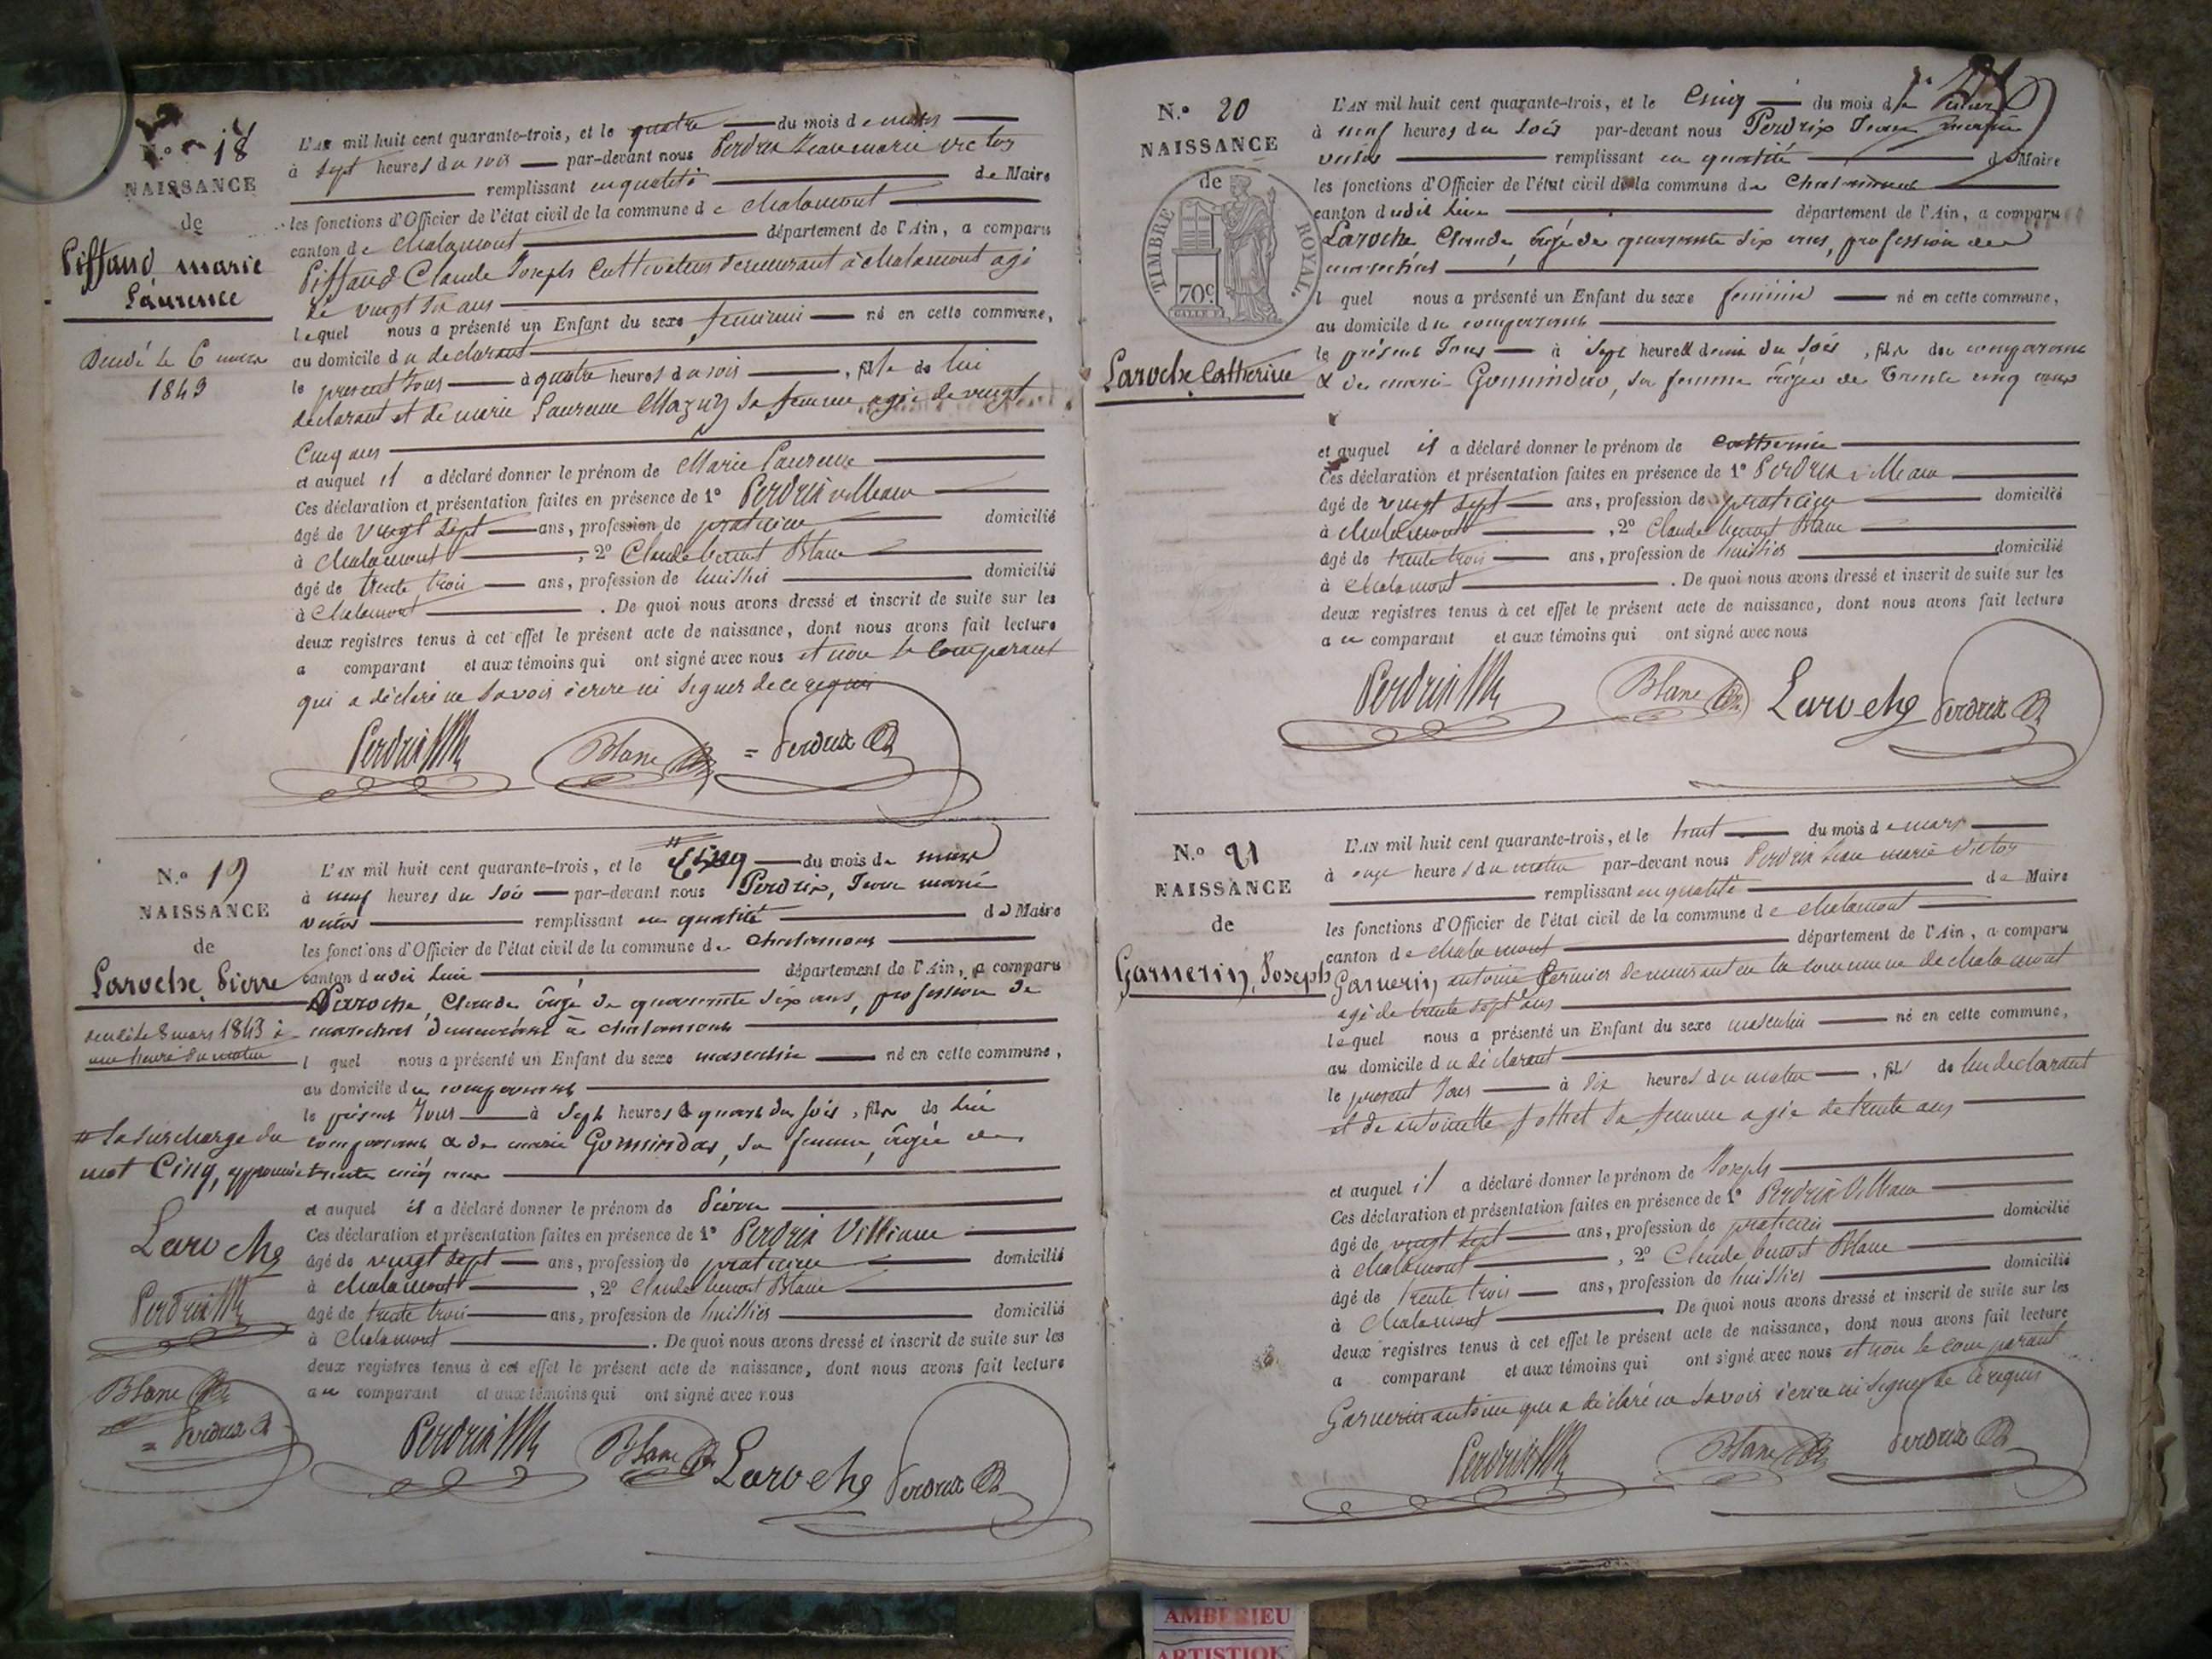 N.° 18
NAISSANCE
de
Piffaud marie
Laurence
Décédé le 6 mars
1843
L'AN mil huit cent quarante-trois, et le quatre du mois de mars
à sept heures du soir par-devant nous Perdrix Jean marie victor
remplissant en qualité de Maire
les fonctions d'Officier de l'état civil de la commune de chalamont
canton de chalamont département de l'Ain, a comparu
Piffaud Claude Joseph Cultivateur demeurant à chalamont agé
de vingt six ans
lequel nous a présenté un Enfant du sexe feminin né en cette commune,
au domicile du declarant
le present Jour à quatre heures du soir, fille de lui
declarant et de marie Laurence Mazuy sa femme agée de vingt
Cinq ans
et auquel il a déclaré donner le prénom de Marie Laurence
Ces déclaration et présentation faites en présence de 1° Perdrix
âgé de vingt sept ans, profession de praticien domicilié
à chalamont, 2° Claude benoit Blanc
âgé de trente trois ans, profession de huissier domicilié
à Chalamont. De quoi nous avons dressé et inscrit de suite sur les
deux registres tenus à cet effet le présent acte de naissance, dont nous avons fait lecture
a comparant et aux témoins qui ont signé avec nous et non le Comparant
qui a déclaré ne savoir écrire ni signer de ce requis
Perdrix Blanc Perdrix
N.° 19
NAISSANCE
de
Laroche, Pierre
décédé le 8 mars 1843 à
une heure du matin
# la surcharge du
mot Cinq, approuvée
Laroche
Perdrix
Blanc
Perdrix
L'AN mil huit cent quarante-trois, et le # Cinq du mois de mars
à neuf heures du soir par-devant nous Perdrix, Jean marie
victor remplissant en qualité de Maire
les fonctions d'Officier de l'état civil de la commune de Chalamont
canton dudit lieu département de l'Ain, a comparu
Laroche, Claude âgé de quarante six ans, profession de
marechal demeurant à chalamont
l quel nous a présenté un Enfant du sexe masculin né en cette commune,
au domicile du comparant
le présent Jour à sept heures & quart du soir, fils de lui
comparant & de marie Gommindas, sa femme, âgée de
trente cinq ans
et auquel il a déclaré donner le prénom de Pierre
Ces déclaration et présentation faites en présence de 1° Perdrix
âgé de vingt sept ans, profession de praticien domicilié
à chalamont, 2° Claude benoit Blanc
âgé de trente trois ans, profession de huissier domicilié
à Chalamont. De quoi nous avons dressé et inscrit de suite sur les
deux registres tenus à cet effet le présent acte de naissance, dont nous avons fait lecture
au comparant et aux témoins qui ont signé avec nous
Perdrix Blanc Laroche Perdrix
N.° 20
NAISSANCE
de
TIMBRE ROYAL.
70c
Laroche Catherine
L'AN mil huit cent quarante-trois, et le Cinq du mois de
à neuf heures du soir par-devant nous Perdrix Jean marie
victor remplissant en qualité de Maire
les fonctions d'Officier de l'état civil de la commune de Chalamont
canton dudit lieu département de l'Ain, a comparu
Laroche Claude, âgé de quarante six ans, profession de
marechal
l quel nous a présenté un Enfant du sexe feminin né en cette commune,
au domicile du comparant
le présent Jour à sept heures & demi du soir, fille du comparant
& de marie Gommindas, sa femme âgée de Trente cinq ans
et auquel il a déclaré donner le prénom de Catherine
Ces déclaration et présentation faites en présence de 1° Perdrix
âgé de vingt sept ans, profession de praticien domicilié
à chalamont, 2° Claude benoit Blanc
âgé de trente trois ans, profession de huissier domicilié
à Chalamont. De quoi nous avons dressé et inscrit de suite sur les
deux registres tenus à cet effet le présent acte de naissance, dont nous avons fait lecture
au comparant et aux témoins qui ont signé avec nous
Perdrix Blanc Laroche Perdrix
N.° 21
NAISSANCE
de
Garnerin, Joseph
L'AN mil huit cent quarante-trois, et le huit du mois de mars
à onze heures du matin par-devant nous Perdrix Jean marie victor
remplissant en qualité de Maire
les fonctions d'Officier de l'état civil de la commune de chalamont
canton de chalamont département de l'Ain, a comparu
Garnerin antoine fermier demeurant en la commune de chalamont
agé de trente sept ans
lequel nous a présenté un Enfant du sexe masculin né en cette commune,
au domicile du déclarant
le present Jour à dix heures du matin, fils de lui declarant
et de antoinette sa femme agée de trente ans
et auquel il a déclaré donner le prénom de Joseph
Ces déclaration et présentation faites en présence de 1° Perdrix
âgé de vingt sept ans, profession de praticien domicilié
à chalamont, 2° Claude benoit Blanc
âgé de trente trois ans, profession de huissier domicilié
à Chalamont. De quoi nous avons dressé et inscrit de suite sur les
deux registres tenus à cet effet le présent acte de naissance, dont nous avons fait lecture
a comparant et aux témoins qui ont signé avec nous et non le comparant
Garnerin antoine qui a déclaré ne savoir écrire ni signer de ce requis
Perdrix Blanc Perdrix
AMBERIEU
ARTISTIQ